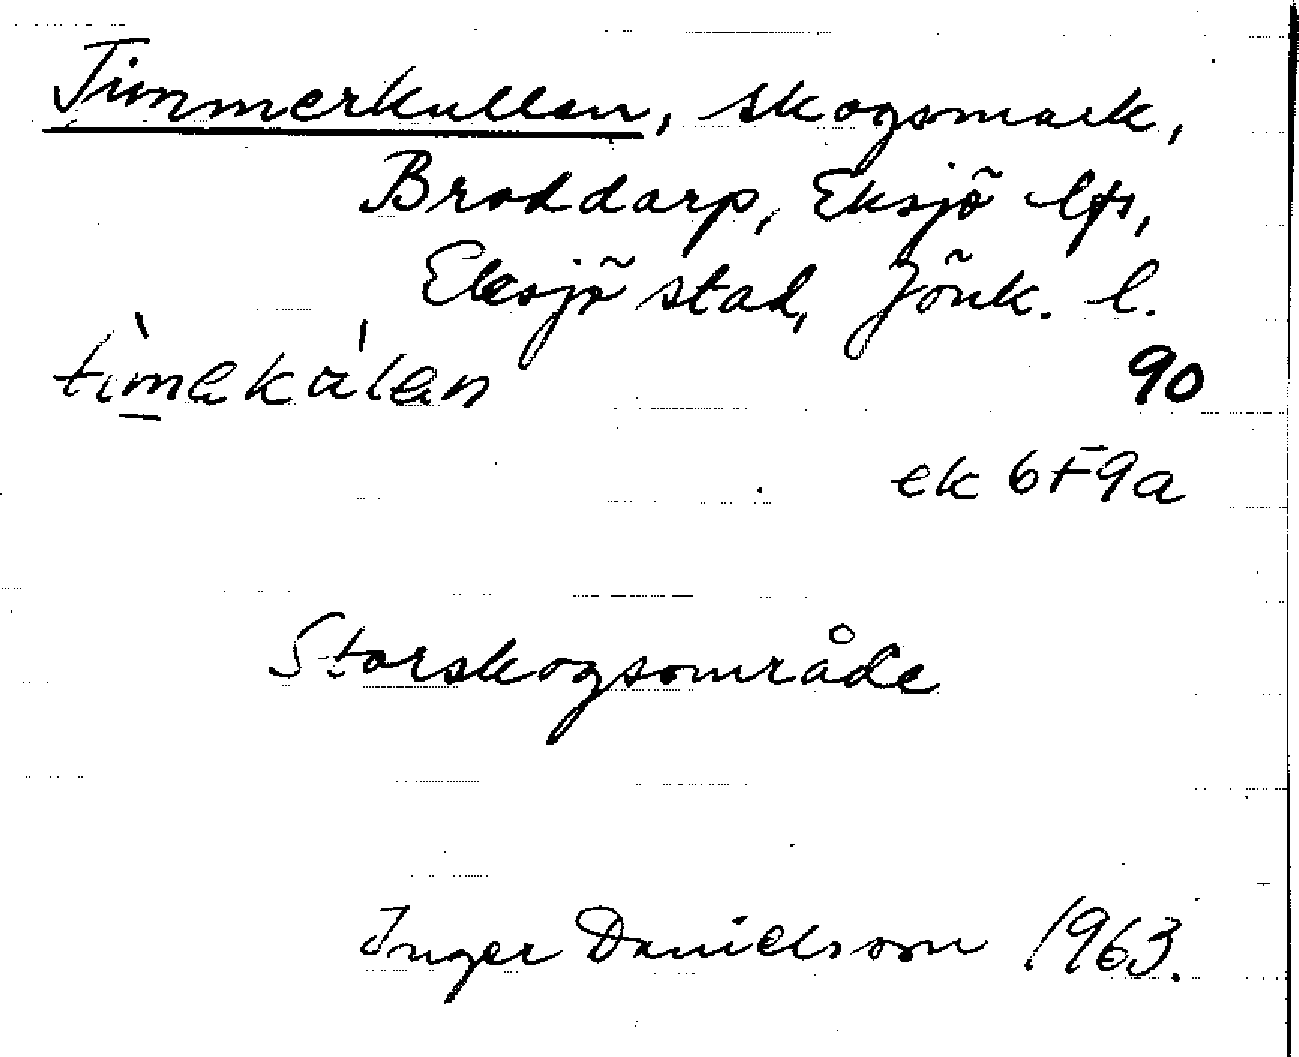 Timmerkullen, skogsmark,
Broddarp, Eksjö lfs,
Eksjö stad, Jönk. l.
tìmekálen
90
ek 6F9a
Storskogsområde
Inger Danielsson 1963.